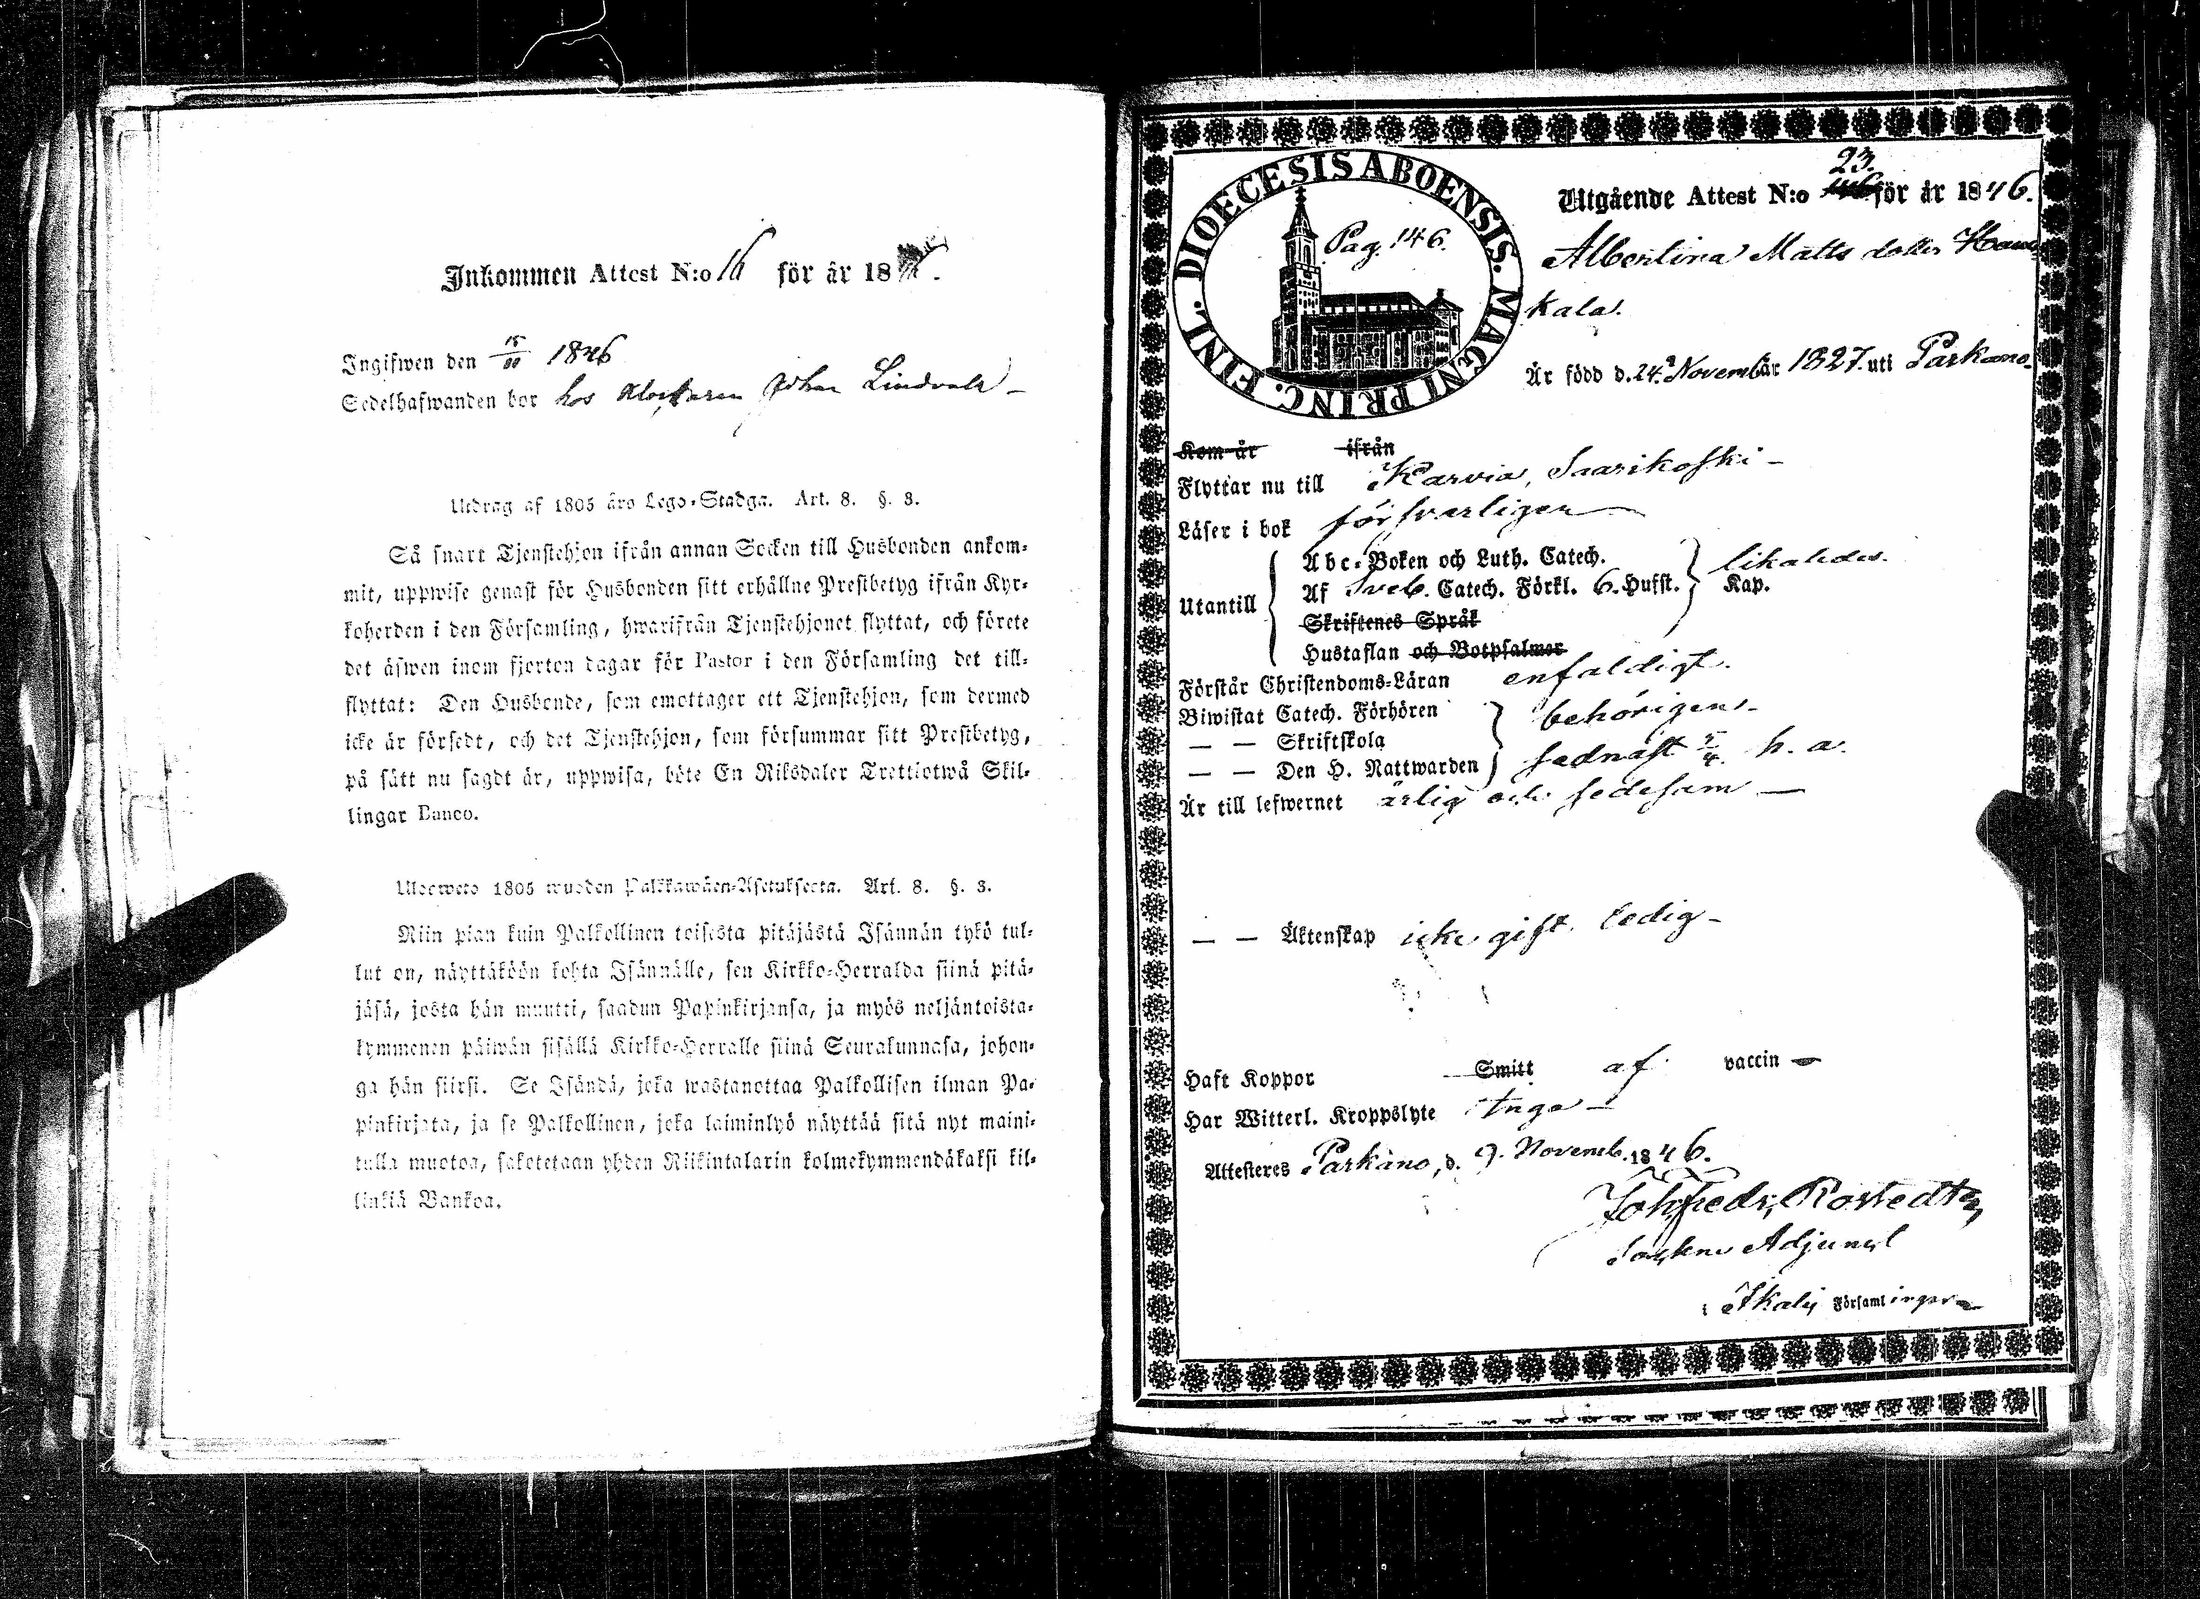 Inkommen Attest N:o 16 för år 18
Ingifwen den 15/00 1846
Sedelhafwanden bor hos Klockaren Johan Lindvall
Utdrag af 1805 års Lego-Stadga. Art. 8. §. 3.
Så snart Tjenstehjon ifrån annan Socken till Husbonden ankom-
mit, uppwise genast för Husbonden sitt erhållne Prestbetyg ifrån Kyr-
koherden i den Församling, hwarifrån Tjenstehjonet flyttat, och förete
det äfwen inom fjorton dagar för Pastor i den Församling det till-
flyttat: Den Husbonde, som emottager ett Tjenstehjon, som dermed
icke är försedt, och det Tjenstehjon, som försummar sitt Prestbetyg,
på sätt nu sagdt är, uppwisa, böte En Riksdaler Trettiotwå Skil-
lingar Banco.
Ulosweto 1805 wuoden Palkkawäen-Asetuksesta. Art. 8. §. 3.
Niin pian kuin Palkollinen toisesta pitäjästä Isännän tykö tul-
lut on, näyttäköön kohta Isännälle, sen Kirkko-Herralda siinä pitä-
jäsä, josta hän muutti, saadun Papinkirjansa, ja myös neljäntoista-
kymmenen päiwän sisällä Kirkko-Herralle siinä Seurakunnasa, johon-
ga hän siirsi. Se Isändä, joka wastanottaa Palkollisen ilman Pa-
pinkirjata, ja se Palkollinen, joka laiminlyö näyttää sitä nyt maini-
tulla muotoa, sakotetaan yhden Riikintalarin kolmekymmendäkaksi kil-
linkiä Bankoa.
DIOECESIS ABOENSIS. MAGNI PRINC. FINL.
Pag. 146.
23.
Utgående Attest N:o för år 1846.
Albertina Matts dotter Kans
kala.
Är född d. 24. Novemb år 1827. uti Parkano
Kom år ifrån
Flyttar nu till Karvia, Saarikoski
Läser i bok försvarligen
Utantill
Abc-Boken och Luth. Catech.
Af Sveb. Catech. Förkl. 6. Hufst. Kap.
Skriftenes Språk
Hustaflan och Botpsalmer
likaledes.
Förstår Christendoms-Läran enfaldigt.
Biwistat Catech. Förhören behörigen
— — Skriftskola
— — Den H. Nattwarden sednast 5/4 h. a.
Är till lefwernet ärlig och sedesam
— — Äktenskap icke gift. ledig
Haft Koppor Smitt af vaccin
Har Witterl. Kroppslyte Inga
Attesteres Parkano, d. 9. Novemb. 1846.
Joh. Fredr. Rostedt
Sockne Adjunct
i Ikalis Församlingar